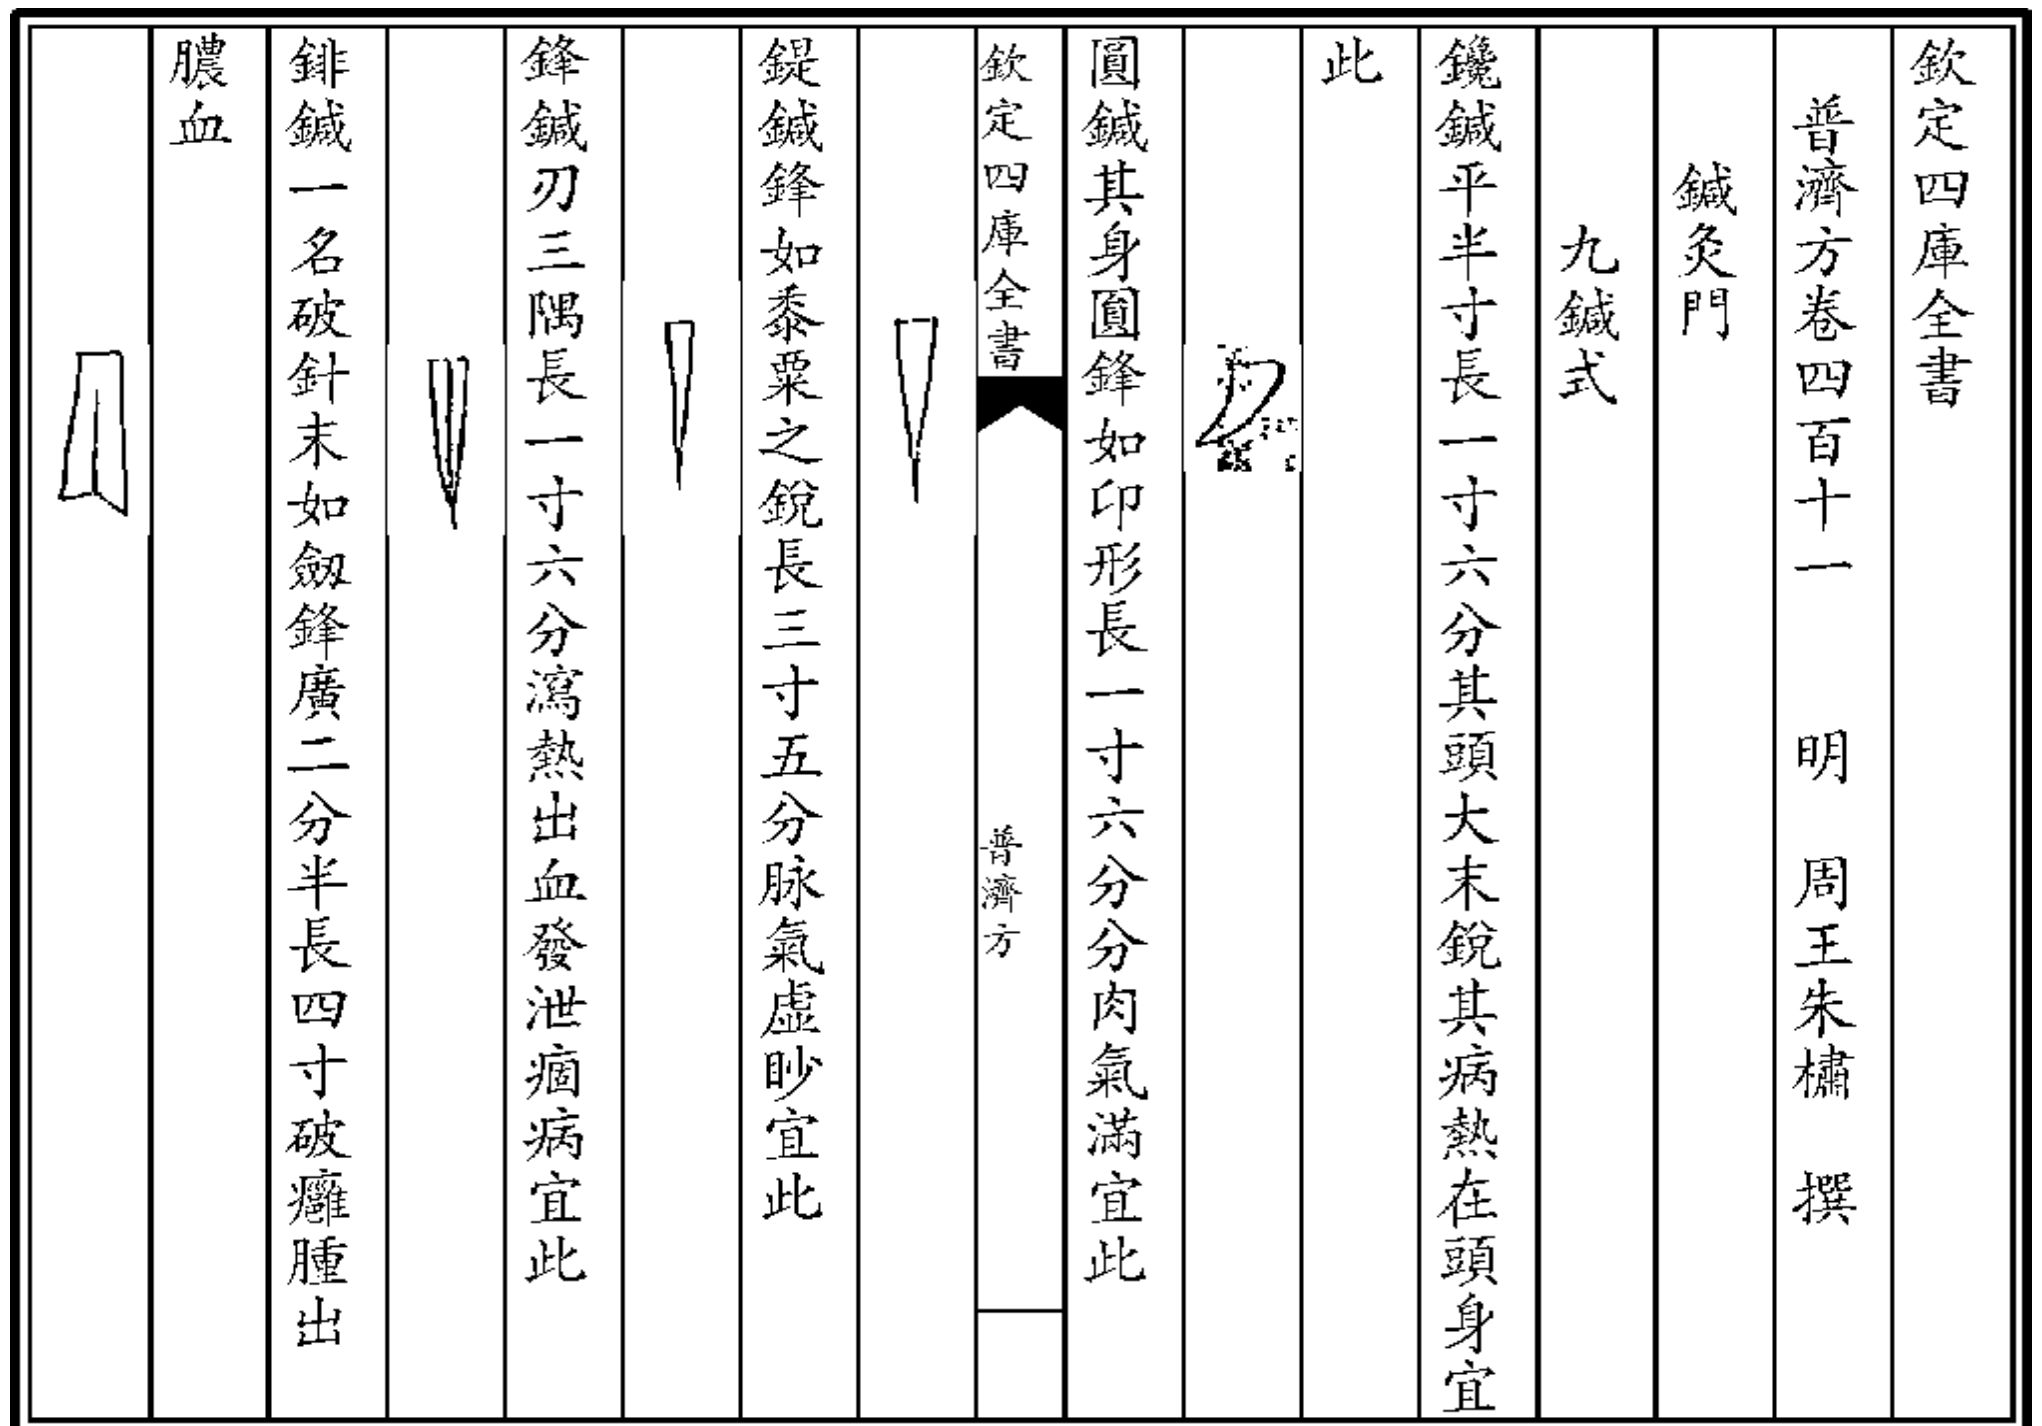 欽定四庫全書
普濟方卷四百十一 明 周王朱橚 撰
鍼灸門
九鍼式
鑱鍼平半寸長一寸六分其頭大末銳其病熱在頭身宜
此
圓鍼其身圓鋒如印形長一寸六分分肉氣滿宜此
欽定四庫全書
普濟方
鍉鍼鋒如黍粟之銳長三寸五分脉氣虛眇宜此
鋒鍼刃三隅長一寸六分瀉熱出血發泄痼病宜此
錍鍼一名破針末如劔鋒廣二分半長四寸破癰腫出
膿血